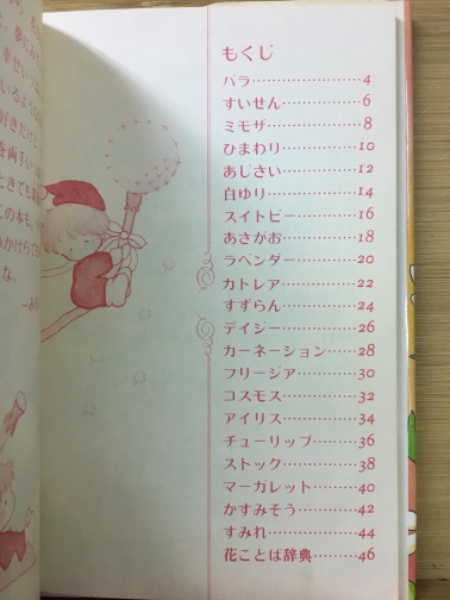 もくじ
バラ……………… 4
すいせん………… 6
ミモザ…………… 8
ひまわり…………10
あじさい…………12
白ゆり……………14
スイトピー………16
あさがお…………18
ラベンダー………20
カトレア…………22
すずらん…………24
デイジー…………26
カーネーション……28
フリージア………30
コスモス…………32
アイリス…………34
チューリップ……36
ストック…………38
マーガレット……40
かすみそう………42
すみれ……………44
花ことば辞典……46
幸せいっ
いるような
好きだけど
を両手いっ
ときでも
ての本も、
のかけらでも
な。